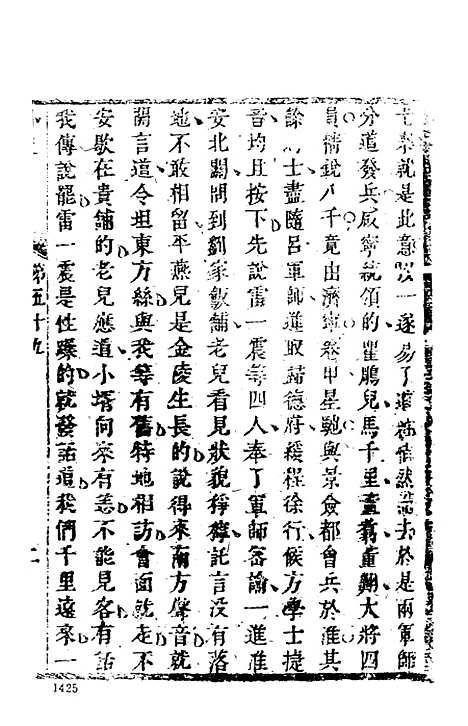 奉就是此意一逐易了遂於是兩軍師
分道發兵咸寧統領的瞿鵰兒馬千里董翥董翺大將四
員精銳八千竟出濟寧卷甲星馳與景僉都會兵於淮其
餘將士盡隨呂軍師進取歸德府緩程徐行候方學士捷
音均且按下先說雷一震等四人奉了軍師密諭一進淮
安北關問到劉家飯舖老兒看見狀貌猙獰託言沒有落
地不敢相留平燕兒是金陵生長的說得來南方聲音就
開言道令坦東方縣與我等有舊特地相訪會面就走不
安歇在貴舖的老兒應道小壻向來有恙不能見客有話
我傳說罷雷一震是性躁的就發話道我們千里遠來一
第五十九
二
1425